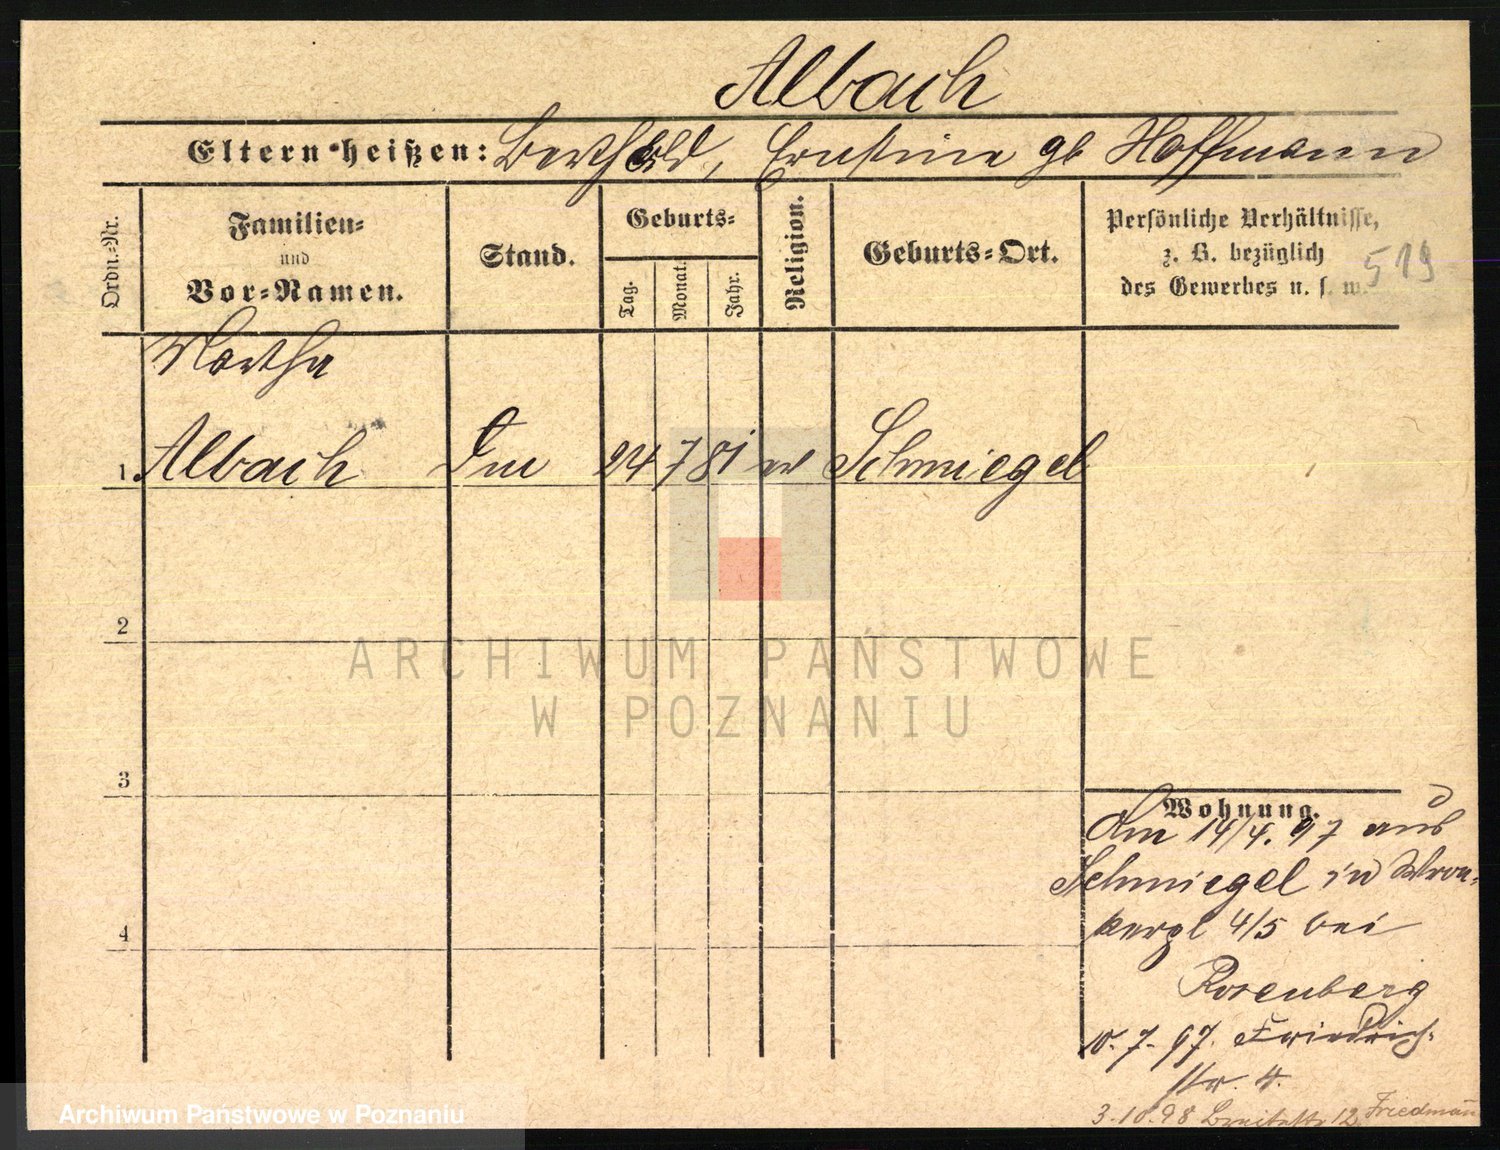 Albach
Eltern heißen: Berthold, Ernstine gb Hoffmann
Ordn.-Nr.
Familien-
und
Vor-Namen.
Stand.
Geburts-
Tag.
Monat.
Jahr.
Religion.
Geburts-Ort.
Persönliche Verhältnisse,
z. B. bezüglich
des Gewerbes u. s. w.
519
Martha
1 Albach 24 7 81 Schmiegel
2
ARCHIWUM PAŃSTWOWE
W POZNANIU
3
Wohnung.
Am 14/4. 97 aus
Schmiegel in Wron-
kerpl 4/5 bei
4
Rosenberg
10. 7. 97. Friedrich-
str. 4.
3.10.98 Breitestr 12 Friedmann
Archiwum Państwowe w Poznaniu